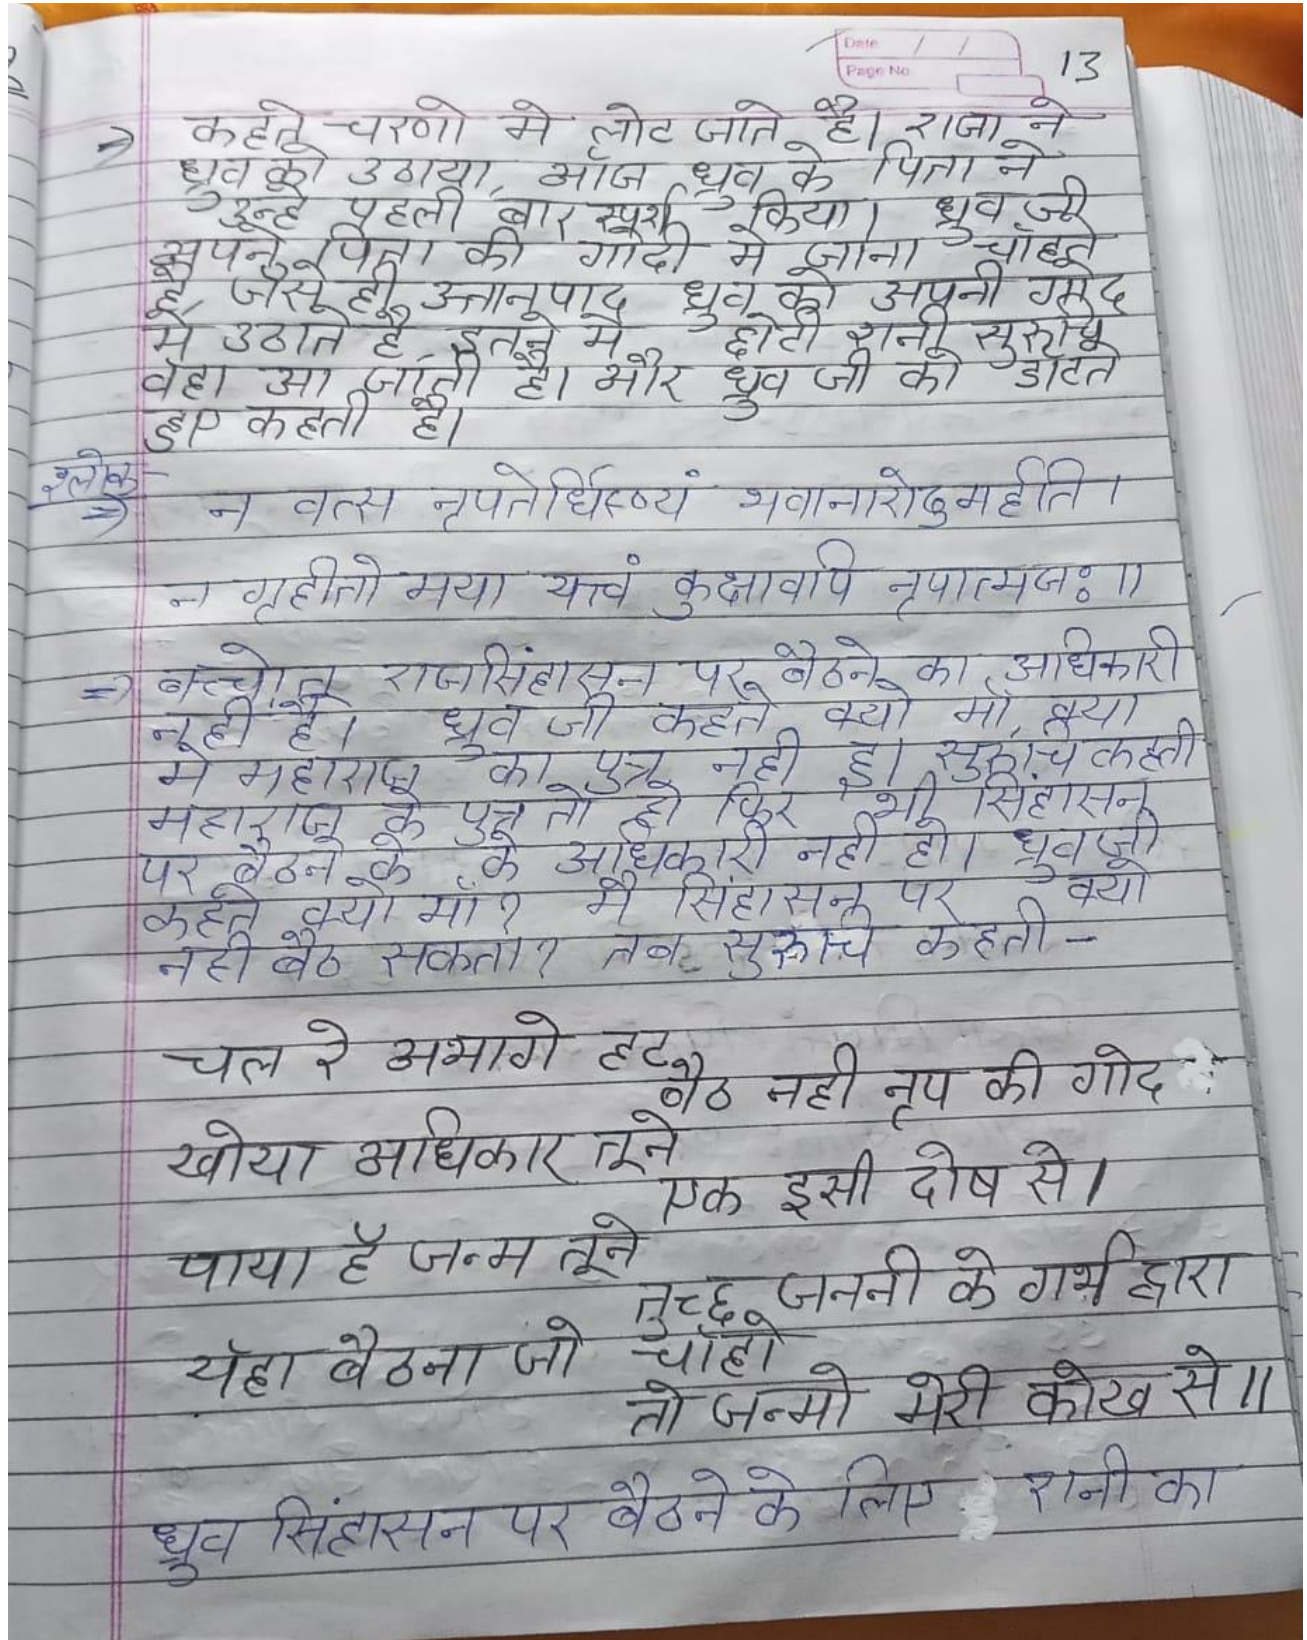 Date / /
Page No.
13
⇒ कहते चरणो मे लोट जाते है। राजा ने
ध्रुव को उठाया, आॅज ध्रुव के पिता ने
उन्हे पहली बार स्पर्श किया। ध्रुव जी
अपने पिता की गोदी मे जाना चाॅहते
है, जैसे ही उत्तानुपाद ध्रुव को अपनी गोद
मे उठाते है, इतने मे छोटी रानी सुरूचि
वहा आ जाती है। और ध्रुव जी को डाॅटते
हुए कहती है।
श्लोक-
⇒ न वत्स नृपतेर्धिष्ण्यं भवानारोढुमर्हति।
न गृहीतो मया यत्त्वं कुक्षावपि नृपात्मजः॥
⇒ बच्चे, तू राजसिंहासन पर बैठने का अधिकारी
नही है। ध्रुव जी कहते क्यो माॅ, क्या
मे महाराज का पुत्र नही हु। सुरूचि कहती
महाराज के पुत्र तो हो फिर भी सिंहासन
पर बैठने के के अधिकारी नही हो। ध्रुव जी
कहते क्यो माॅ? मै सिंहासन पर क्यो
नही बैठ सकता? तब सुरूचि कहती -
चल रे अभागे हट,
बैठ नही नृप की गोद
खोया अधिकार तूने
एक इसी दोष से।
पाया हॅ जन्म तूने
तुच्छ जननी के गर्भ द्वारा
यॅहा बैठना जो चाॅहो
तो जन्मो मेरी कोख से॥
ध्रुव सिंहासन पर बैठने के लिए रानी का